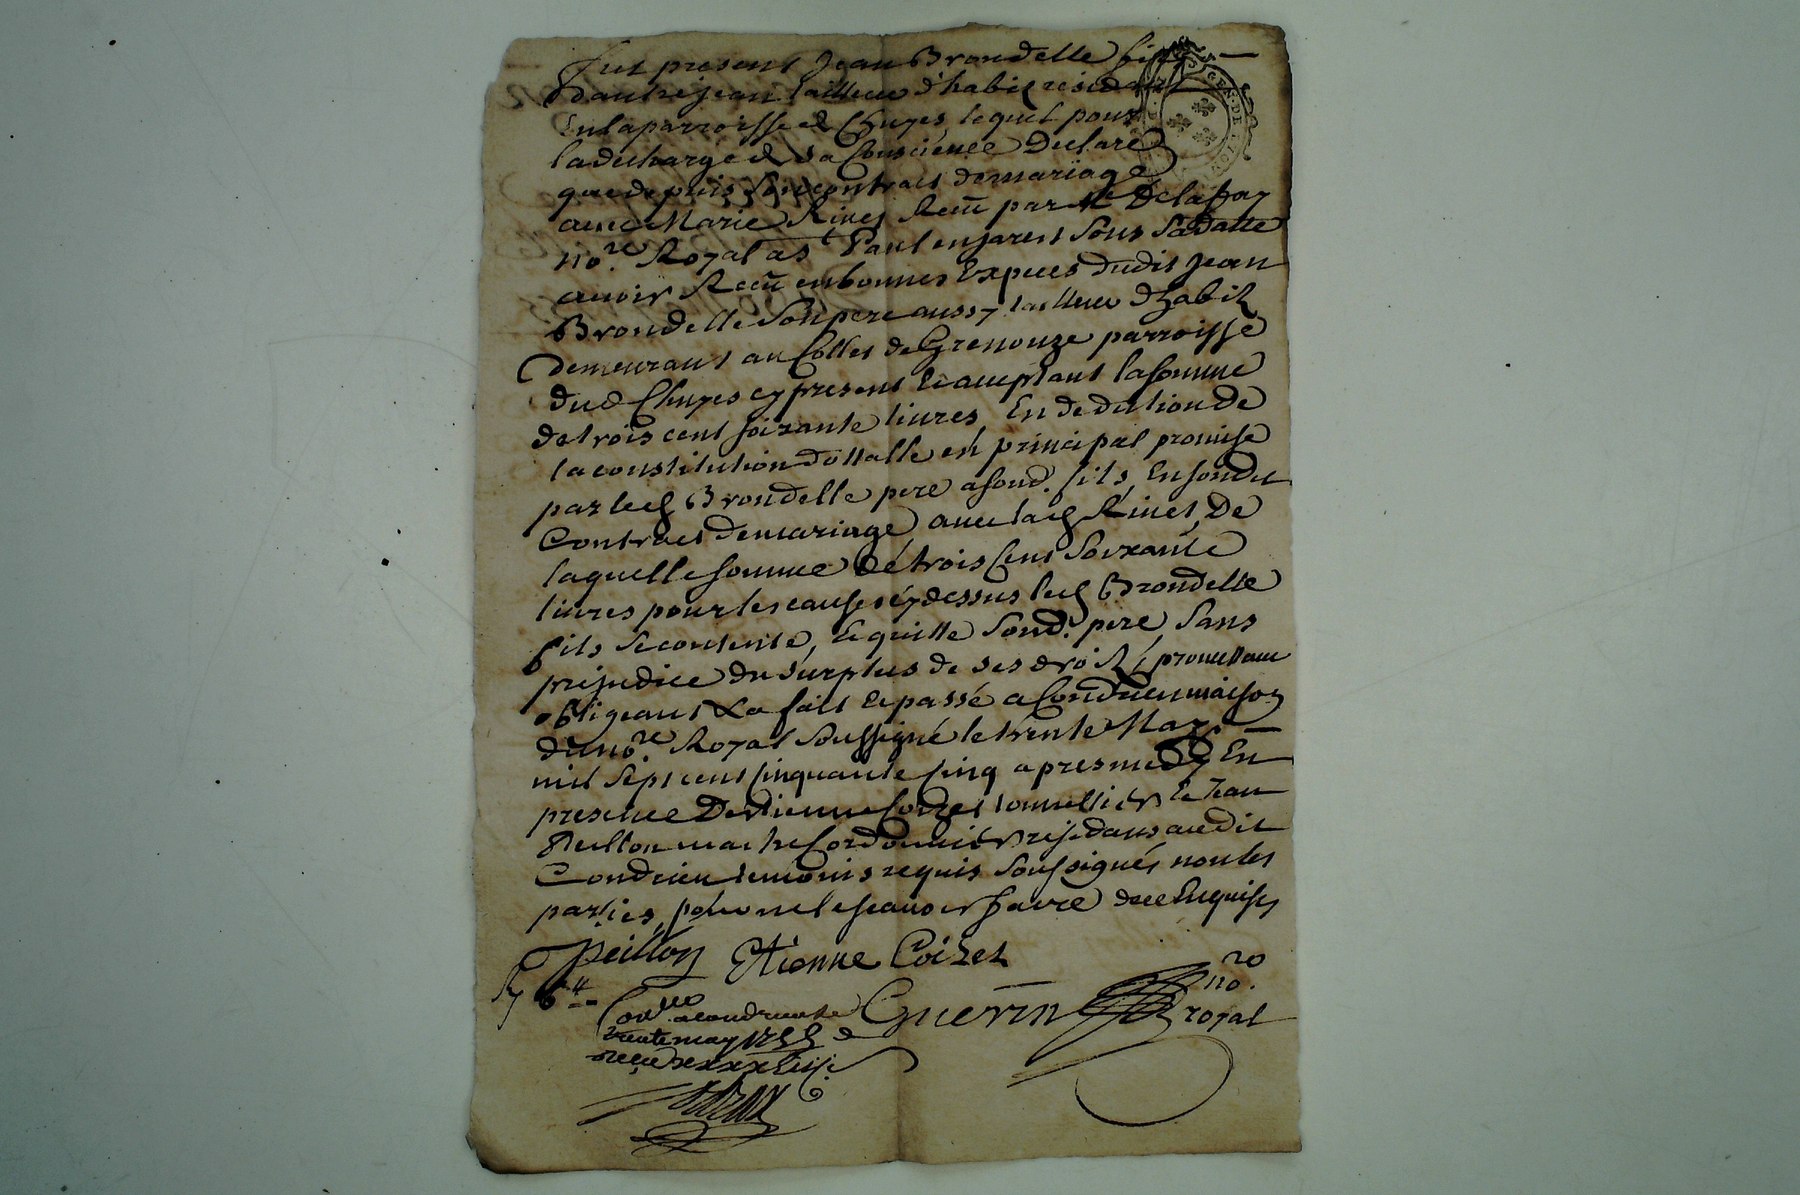 Fut present Jean Brondelle fils
dautre jean tailleur d'habit residant
En la parroisse de Chuyes lequel pour
la decharge de sa Conscience Declare
que depuis son contract de mariage
avec Marie Rivet Receu par Me Delafay
nore. Royal a St Paul en jarest sous sa datte
avoir Receu en bonnes Expeces dudit Jean
Brondelle son pere aussy tailleur d'habit
Demeurant au de Grenouze parroisse
dud Chuyes cy present Et acceptant la somme
de trois cent soixante livres, En deduction de
la constitution dottalle en principal promise
par led Brondelle pere a sond. fils, En sondit
Contract de mariage, avec lad Rivet, De
laquelle somme de trois Cent Soixante
livres pour les causes cy dessus led Brondelle
fils se contente, Et quitte sond. pere, sans
prejudice du surplus de ses droits, promettant
obligeant &a fait Et passé a Condrieu maison
du nore. Royal soussigné le trente May
mil sept cent cinquante cinq apres midy En
presence D'Etienne Coizet tonnellier Et Jean
Peillon maitre Cordonnier residans audit
Condrieu temoins requis soussignés non les
parties, pour ne le scavoir faire de ce Enquises
Peillon Etienne Coizet
Guerin no. royal
Conllé a Condrieu le
trente may 1755
reçu